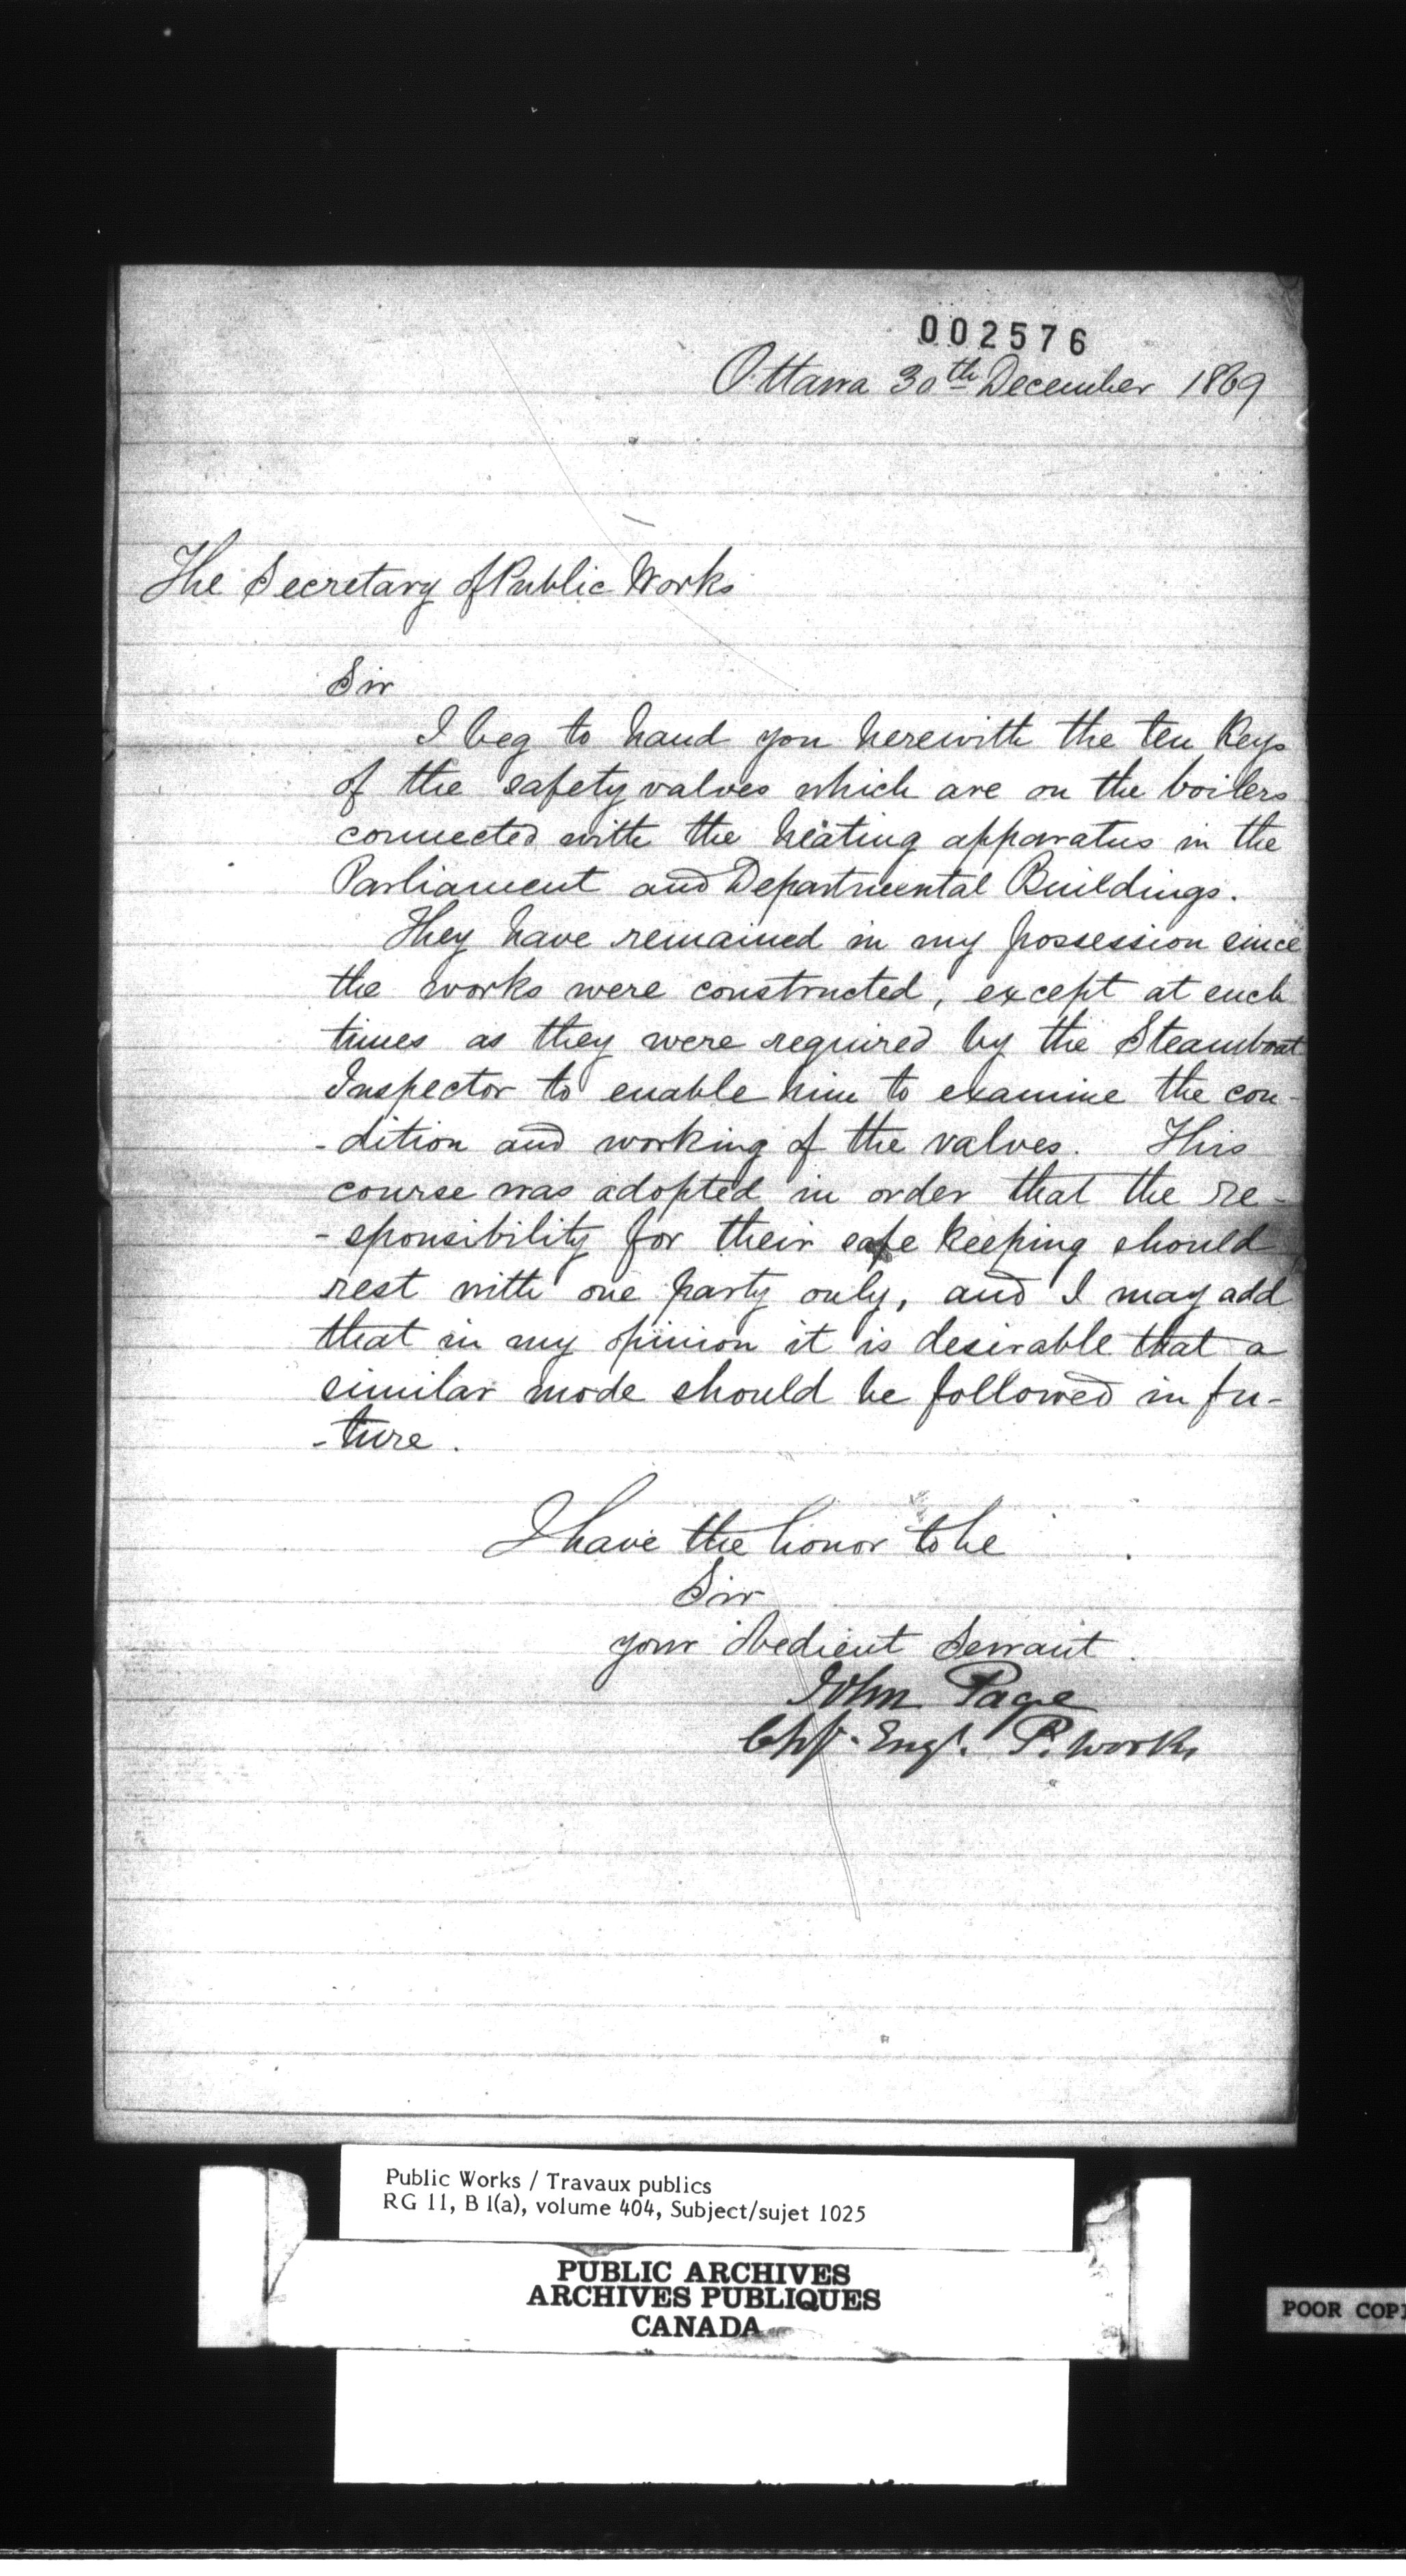 002576
Ottawa 30th December 1869
The Secretary of Public Works
Sir
I beg to hand you herewith the ten keys
of the safety valves which are on the boilers
connected with the heating apparatus in the
Parliament and Departmental Buildings.
They have remained in my possession since
the works were constructed, except at such
times as they were required by the Steamboat
Inspector to enable him to examine the con-
-dition and working of the valves. This
course was adopted in order that the re-
-sponsibility for their safe keeping should
rest with one party only, and I may add
that in my opinion it is desirable that a
similar mode should be followed in fu-
-ture.
I have the honor to be
Sir
your obedient Servant
John Page
Chf. Engr. P. Works
Public Works / Travaux publics
RG 11, B 1(a), volume 404, Subject/sujet 1025
PUBLIC ARCHIVES
ARCHIVES PUBLIQUES
CANADA
POOR COPI